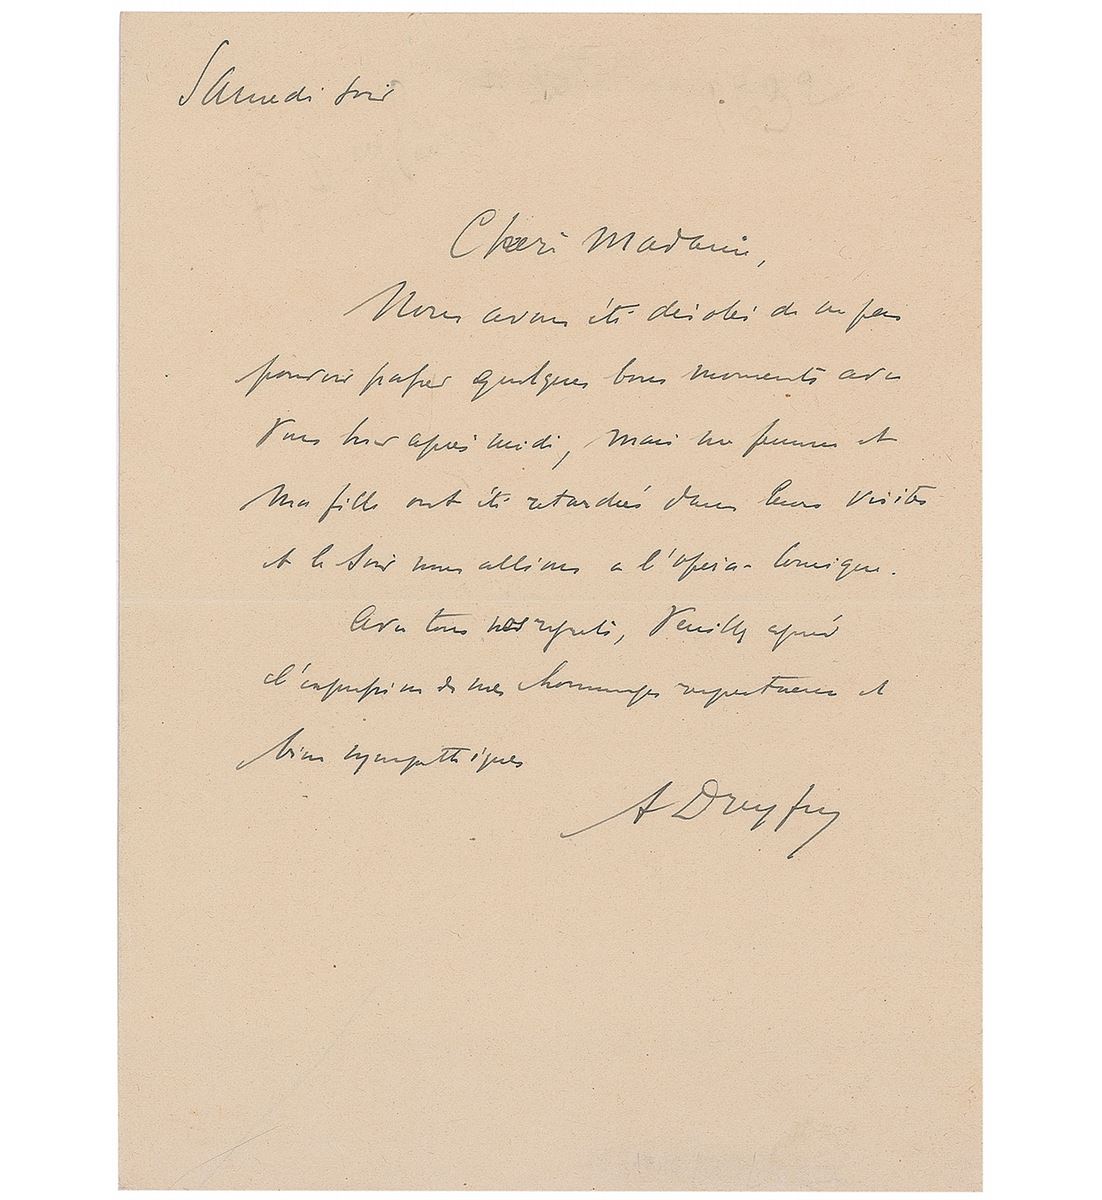 Samedi soir
Chère Madame,
Nous avons été désolés de ne pas
pouvoir passer quelques bons moments avec
vous hier après midi, mais ma femme et
ma fille ont été retardées dans leurs visites
et le soir nous allions a l'opéra-comique.
Avec tous nos regrets, Veuillez agréer
l'expression de mes hommages respectueux et
bien sympathiques
A Dreyfus